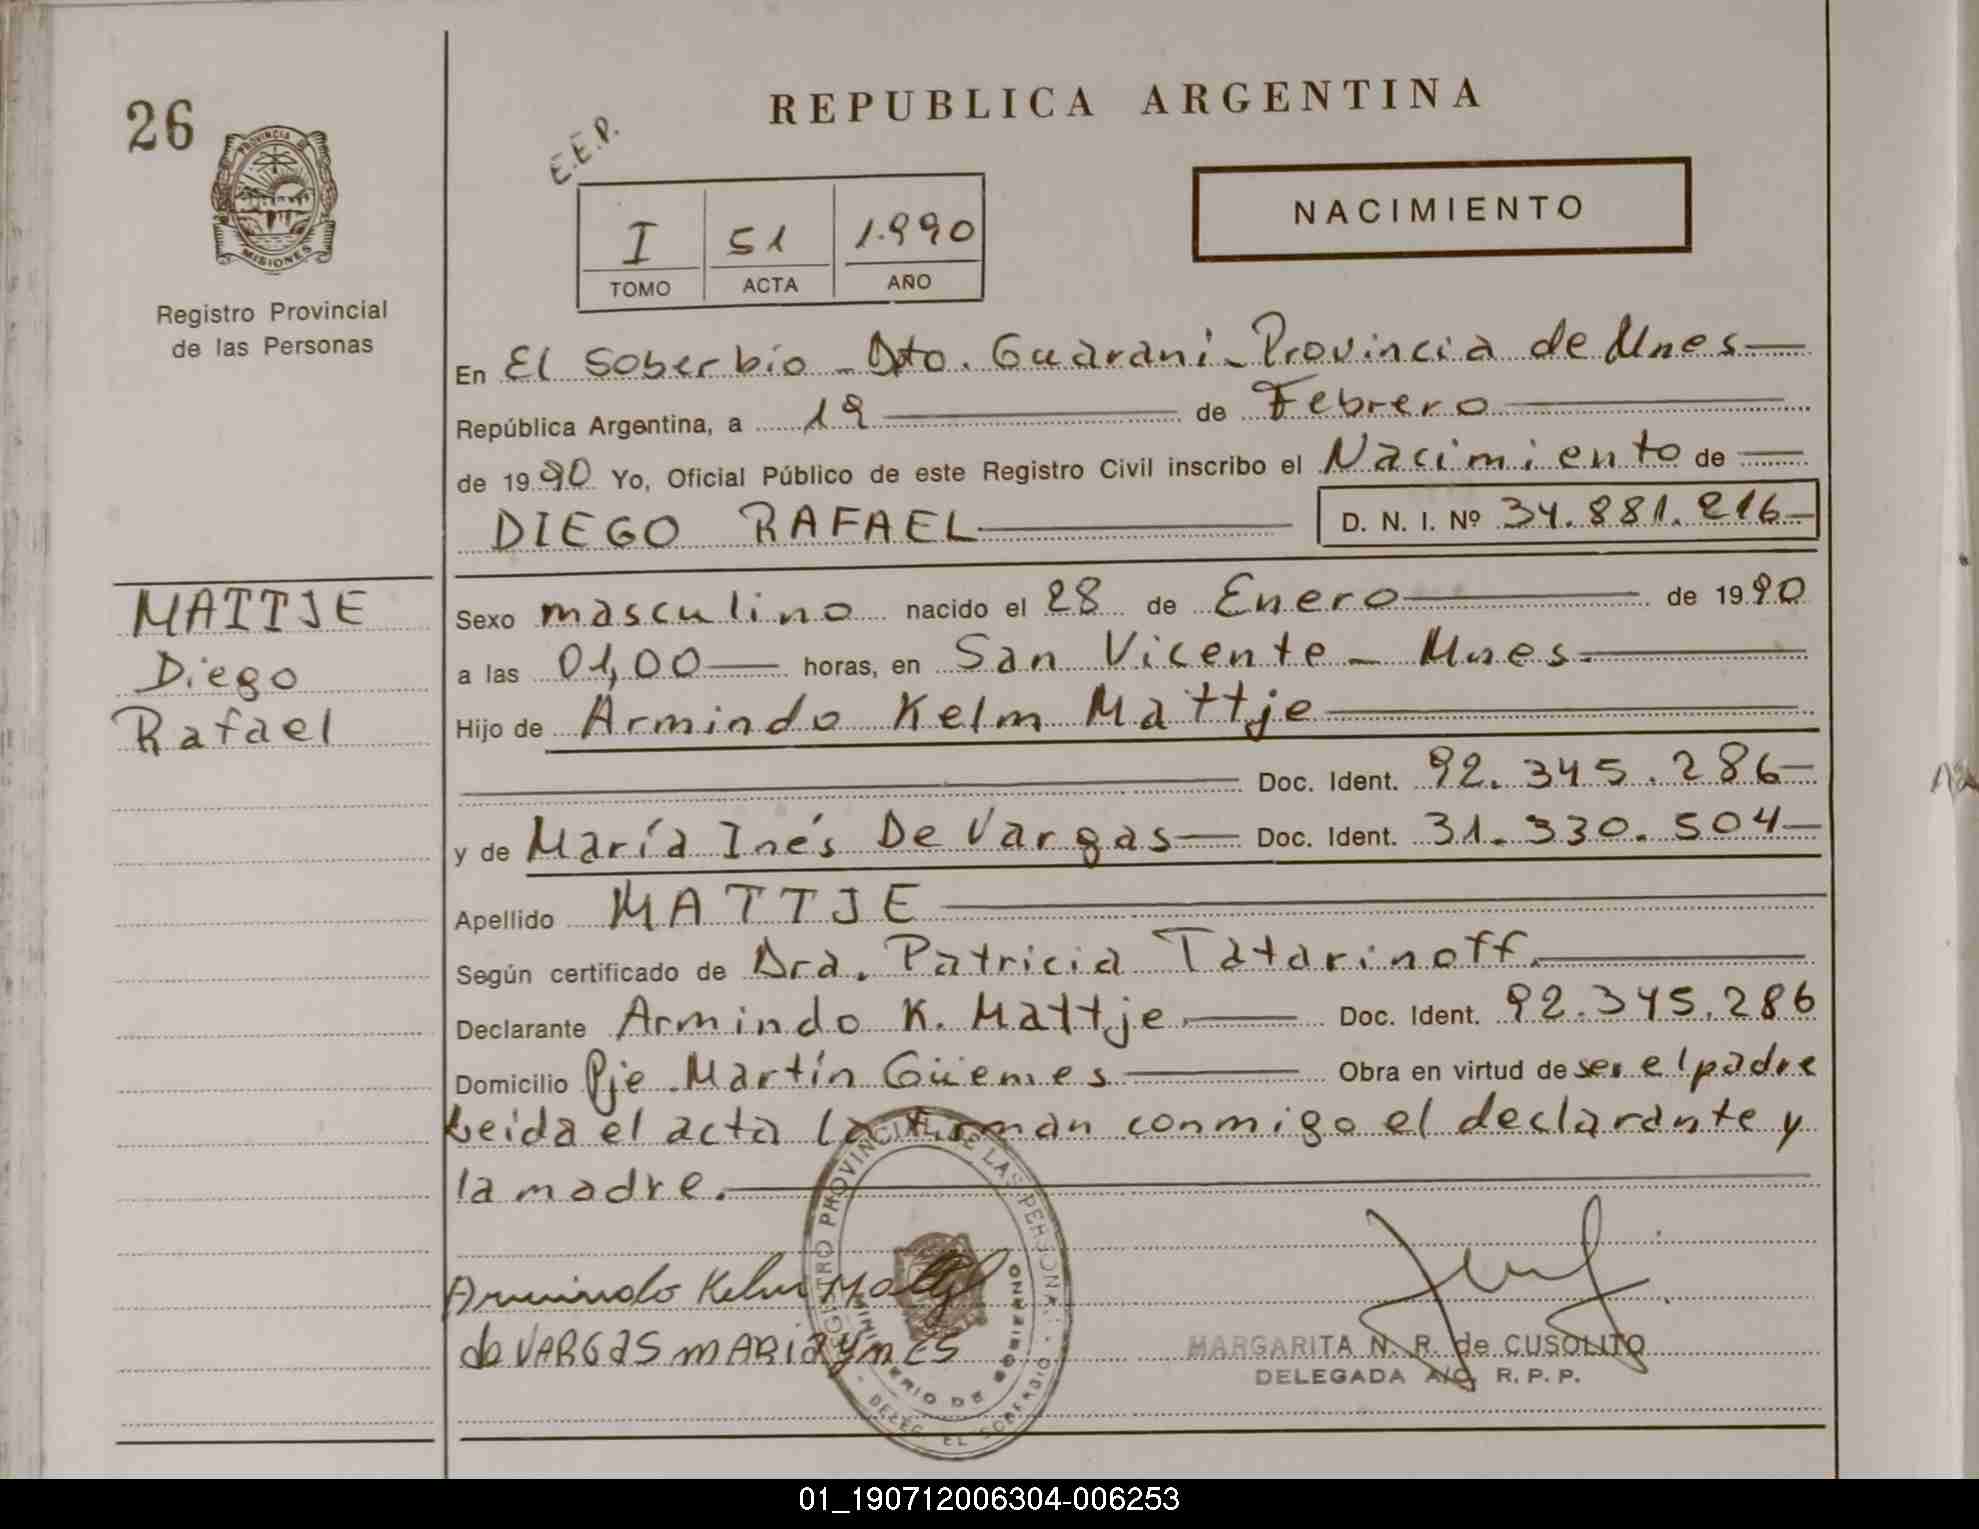 26
REPUBLICA ARGENTINA
E.E.P.
PROVINCIA DE
MISIONES
Registro Provincial
de las Personas
NACIMIENTO
I 51 1.990
TOMO ACTA AÑO
En El Soberbio - Dto. Guaraní - Provincia de Mnes
República Argentina, a 19 de Febrero
de 1990 Yo, Oficial Público de este Registro Civil inscribo el Nacimiento de
DIEGO RAFAEL D. N. I. Nº 34.881.216
MATTJE
Diego
Rafael
Sexo masculino nacido el 28 de Enero de 1990
a las 01,00 horas, en San Vicente - Mnes
Hijo de Armindo Kelm Mattje
Doc. Ident. 92.345.286
y de María Inés De Vargas Doc. Ident. 31.330.504
Apellido MATTJE
Según certificado de Dra. Patricia Tatarinoff
Declarante Armindo K. Mattje Doc. Ident. 92.345.286
Domicilio Pje Martín Güemes Obra en virtud de ser el padre
Leida el acta la firman conmigo el declarante y
la madre.
REGISTRO PROVINCIAL DE LAS PERSONAS
MINISTERIO DE GOBIERNO
DELEG. EL SOBERBIO
Armindo Kelm
de VARGAS MARIA YNES
MARGARITA N. R. de CUSOLITO
DELEGADA A/C. R. P. P.
01_190712006304-006253